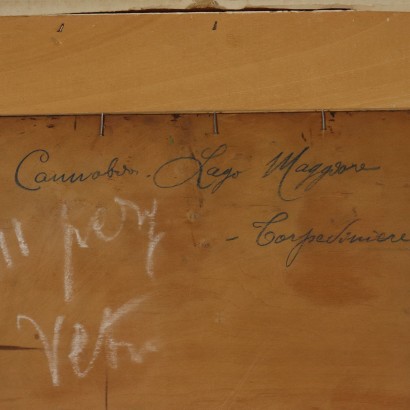 Cannobio. Lago Maggiore
- Torpediniere
11 per
Vetr